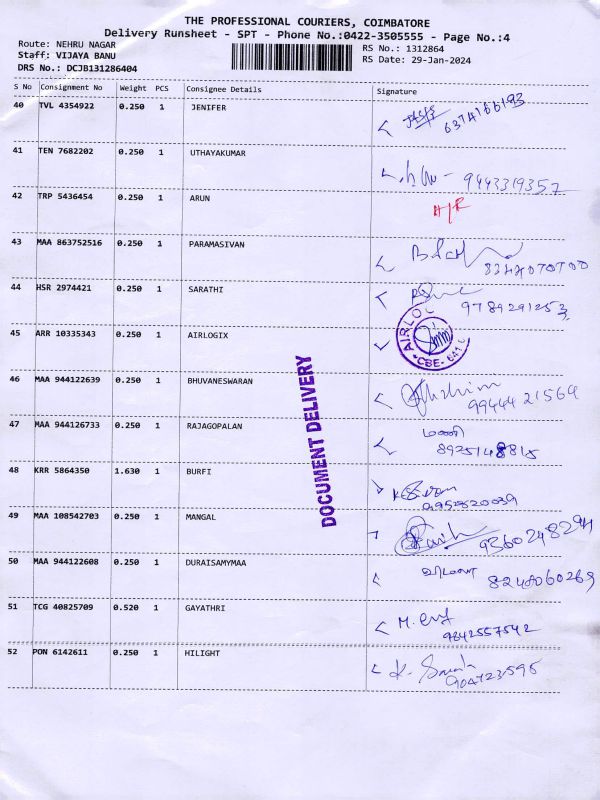 THE PROFESSIONAL COURIERS, COIMBATORE
Delivery Runsheet - SPT - Phone No.:0422-3505555 - Page No.:4
Route: NEHRU NAGAR
RS No.: 1312864
Staff: VIJAYA BANU
RS Date: 29-Jan-2024
DRS No.: DCJB131286404
S No Consignment No Weight PCS Consignee Details Signature
40 TVL 4354922 0.250 1 JENIFER 6374166193
41 TEN 7682202 0.250 1 UTHAYAKUMAR 9443319357
42 TRP 5436454 0.250 1 ARUN H/R
43 MAA 863752516 0.250 1 PARAMASIVAN
44 HSR 2974421 0.250 1 SARATHI 9789291253
45 ARR 10335343 0.250 1 AIRLOGIX
46 MAA 944122639 0.250 1 BHUVANESWARAN 9944421564
47 MAA 944126733 0.250 1 RAJAGOPALAN மணி 8925148815
48 KRR 5864350 1.630 1 BURFI
49 MAA 108542703 0.250 1 MANGAL 9360248294
50 MAA 944122608 0.250 1 DURAISAMYMAA 8248060269
51 TCG 40825709 0.520 1 GAYATHRI 9842557542
52 PON 6142611 0.250 1 HILIGHT
DOCUMENT DELIVERY